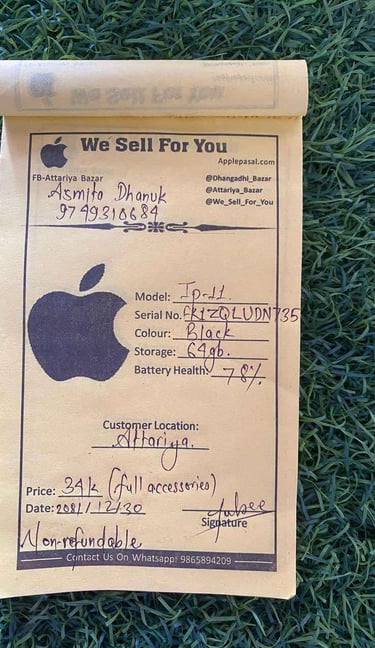 We Sell For You
Applepasal.com
FB-Attariya Bazar
@Dhangadhi_Bazar
@Attariya_Bazar
@We_Sell_For_You
Asmita Dhanuk
9749310684
Model: Ip-11.
Serial No. FK1ZQLUDN735
Colour: Black
Storage: 64gb.
Battery Health: 78%
Customer Location:
Attariya.
Price: 34k (full accessories)
Date: 2081/12/30
Signature
Non-refundable
Contact Us On Whatsapp: 9865894209